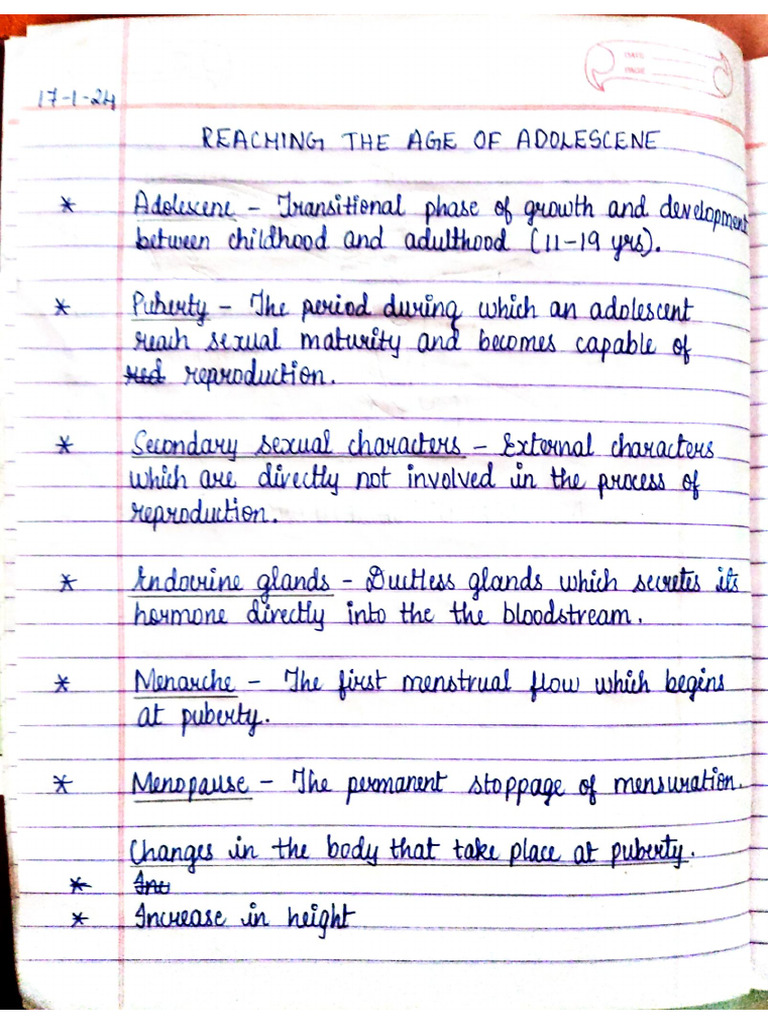 17-1-24
REACHING THE AGE OF ADOLESCENE
* Adolescene - Transitional phase of growth and development
between childhood and adulthood (11-19 yrs).
* Puberty - The period during which an adolescent
reach sexual maturity and becomes capable of
red reproduction.
* Secondary sexual characters - External characters
which are directly not involved in the process of
reproduction.
* Endocrine glands - Ductless glands which secretes its
hormone directly into the the bloodstream.
* Menarche - The first menstrual flow which begins
at puberty.
* Menopause - The permanent stoppage of mensuration.
Changes in the body that take place at puberty.
* Inc
* Increase in height